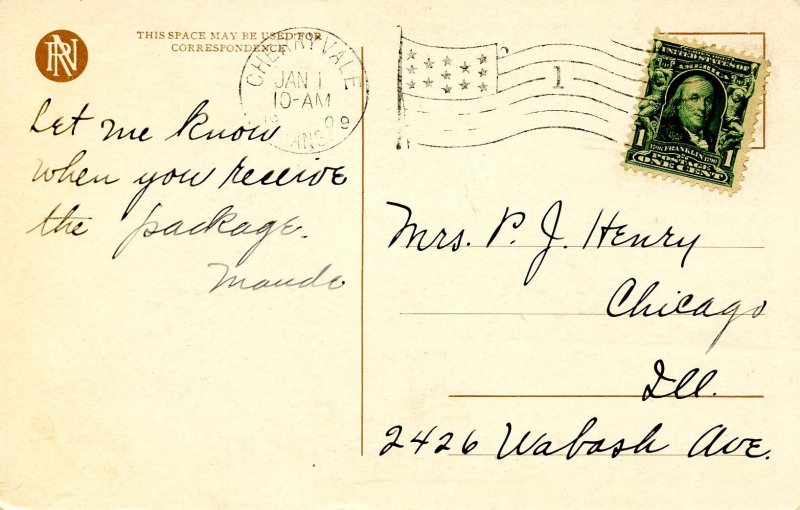 THIS SPACE MAY BE USED FOR
CORRESPONDENCE
CHERRYVALE
JAN 1
10-AM
19 09
KANS.
1
UNITED STATES OF
AMERICA
1
1
FRANKLIN
POSTAGE
ONE CENT
Let me know
when you receive
the package.
Maude
Mrs. P. J. Henry
Chicago
Ill.
2426 Wabash Ave.